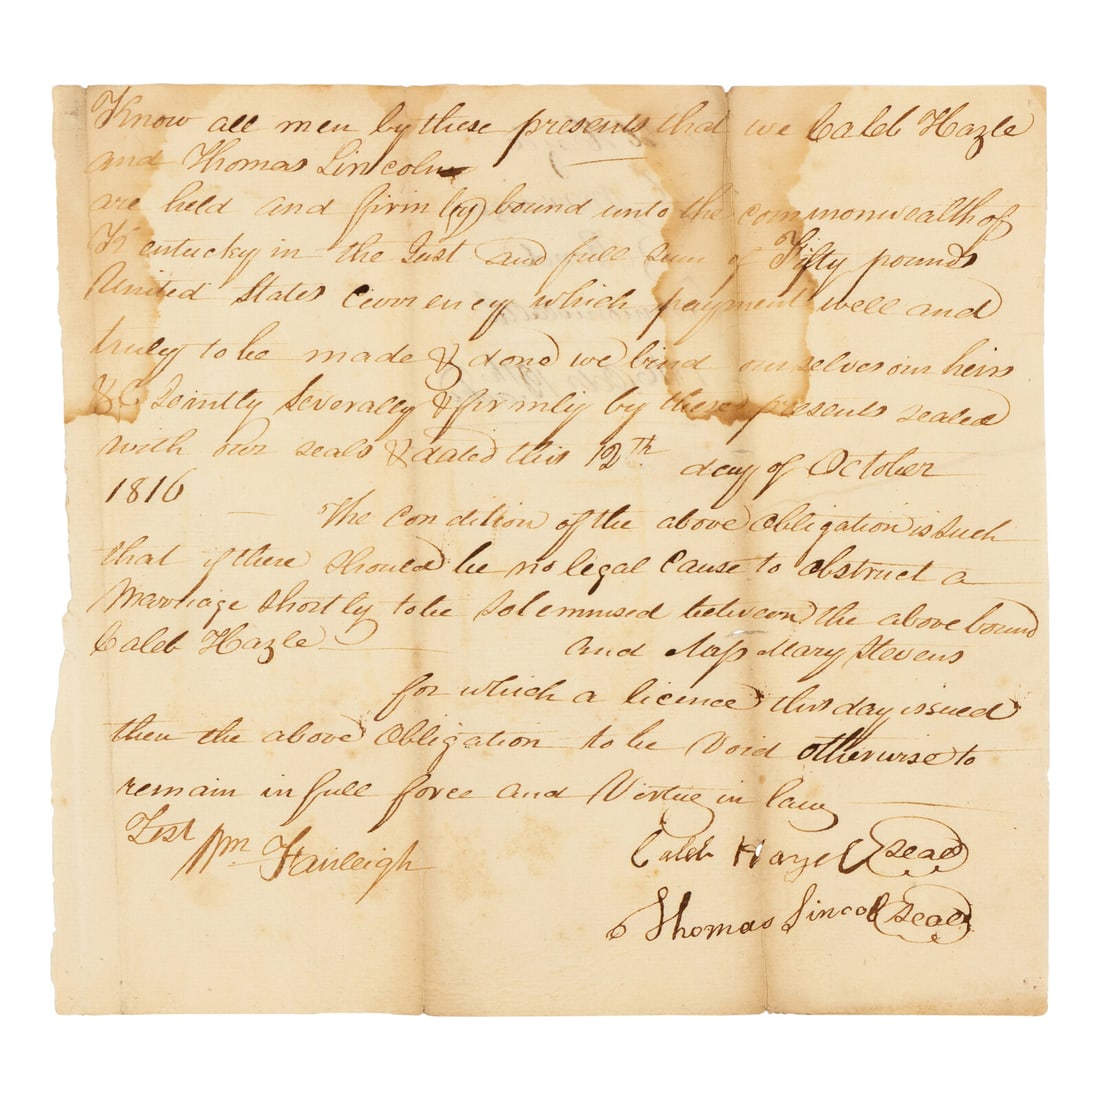 Know all men by these presents that we Caleb Hazle
and Thomas Lincoln
are held and firmly bound unto the commonwealth of
Kentucky in the Just and full sum of Fifty pounds
United States Currency which payment well and
truly to be made & done we bind ourselves our heirs
&C Jointly Severally & firmly by these presents sealed
with our seals & dated this 12th day of October
1816
The Condition of the above Obligation is such
that if there should be no legal Cause to obstruct a
Marriage shortly to be solemnised between the above bound
Caleb Hazle and Miss Mary Stevens
for which a licence this day issued
then the above Obligation to be Void otherwise to
remain in full force and Virtue in law
Test Wm Fairleigh
Caleb Hazel seal
Thomas Lincol seal